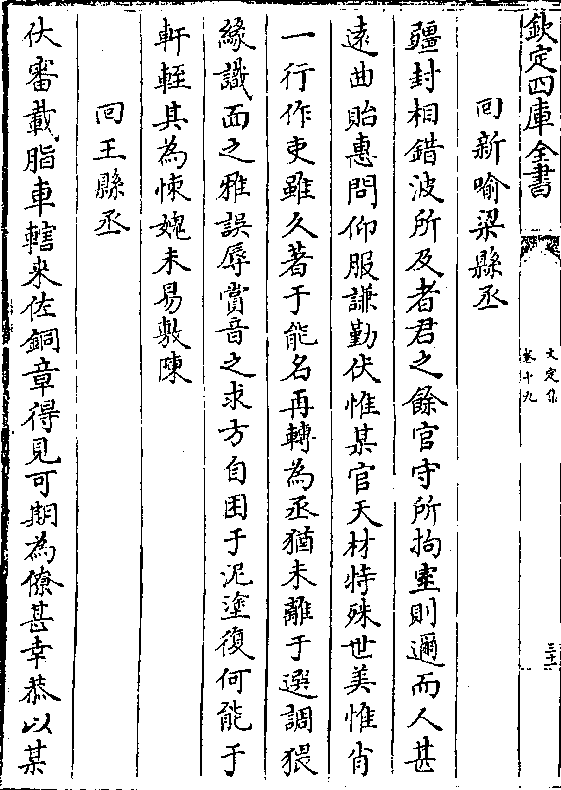 欽定四庫全書
文定集
卷十九
三十二
回新喻梁縣丞
疆封相錯波所及者君之餘官守所拘室則邇而人甚
遠曲貽惠問仰服謙勤伏惟某官天材特殊世美惟肖
一行作吏雖久著于能名再轉為丞猶未離于選調猥
緣識面之雅誤辱賞音之求方自困于泥塗復何能于
軒輊其為悚媿未易敷陳
回王縣丞
伏審載脂車轄来佐銅章得見可期為僚甚幸恭以某